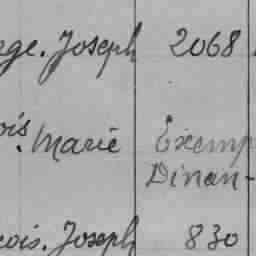 ge. Joseph 2068
ois. Marie Exemp
Dinan-
cois. Joseph 830